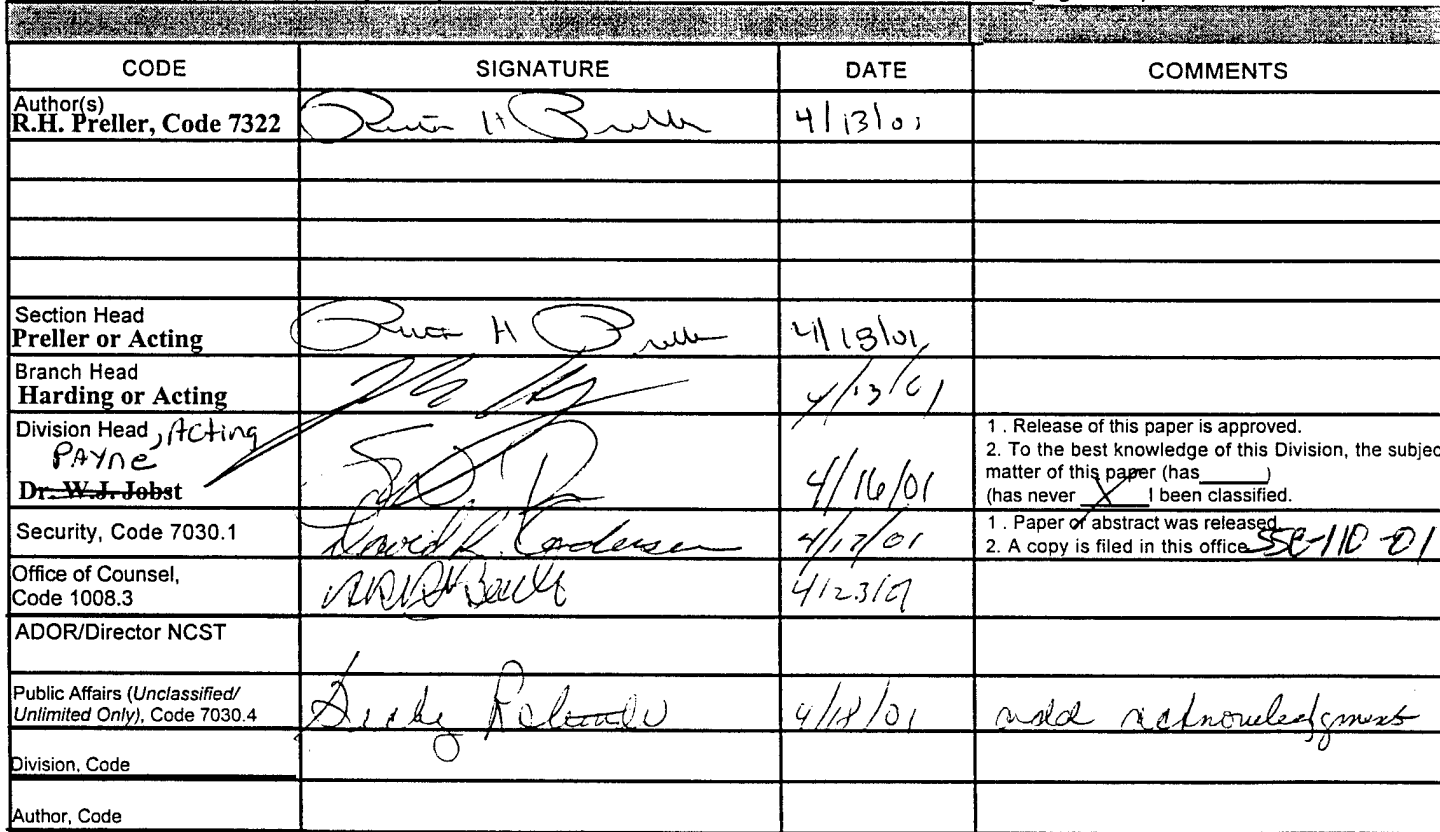 CODE SIGNATURE DATE COMMENTS
Author(s)
R.H. Preller, Code 7322 Ruth H Preller 4/13/01
Section Head
Preller or Acting Ruth H Preller 4/13/01
Branch Head
Harding or Acting 4/13/01
Division Head, Acting
PAYNE
Dr. W.J. Jobst 4/16/01
1 . Release of this paper is approved.
2. To the best knowledge of this Division, the subjec
matter of this paper (has_____)
(has never __X__ ) been classified.
Security, Code 7030.1 4/17/01
1 . Paper or abstract was released
2. A copy is filed in this office SSC-110-01
Office of Counsel,
Code 1008.3 4/23/01
ADOR/Director NCST
Public Affairs (Unclassified/
Unlimited Only), Code 7030.4 4/18/01 add acknowledgment
Division, Code
Author, Code